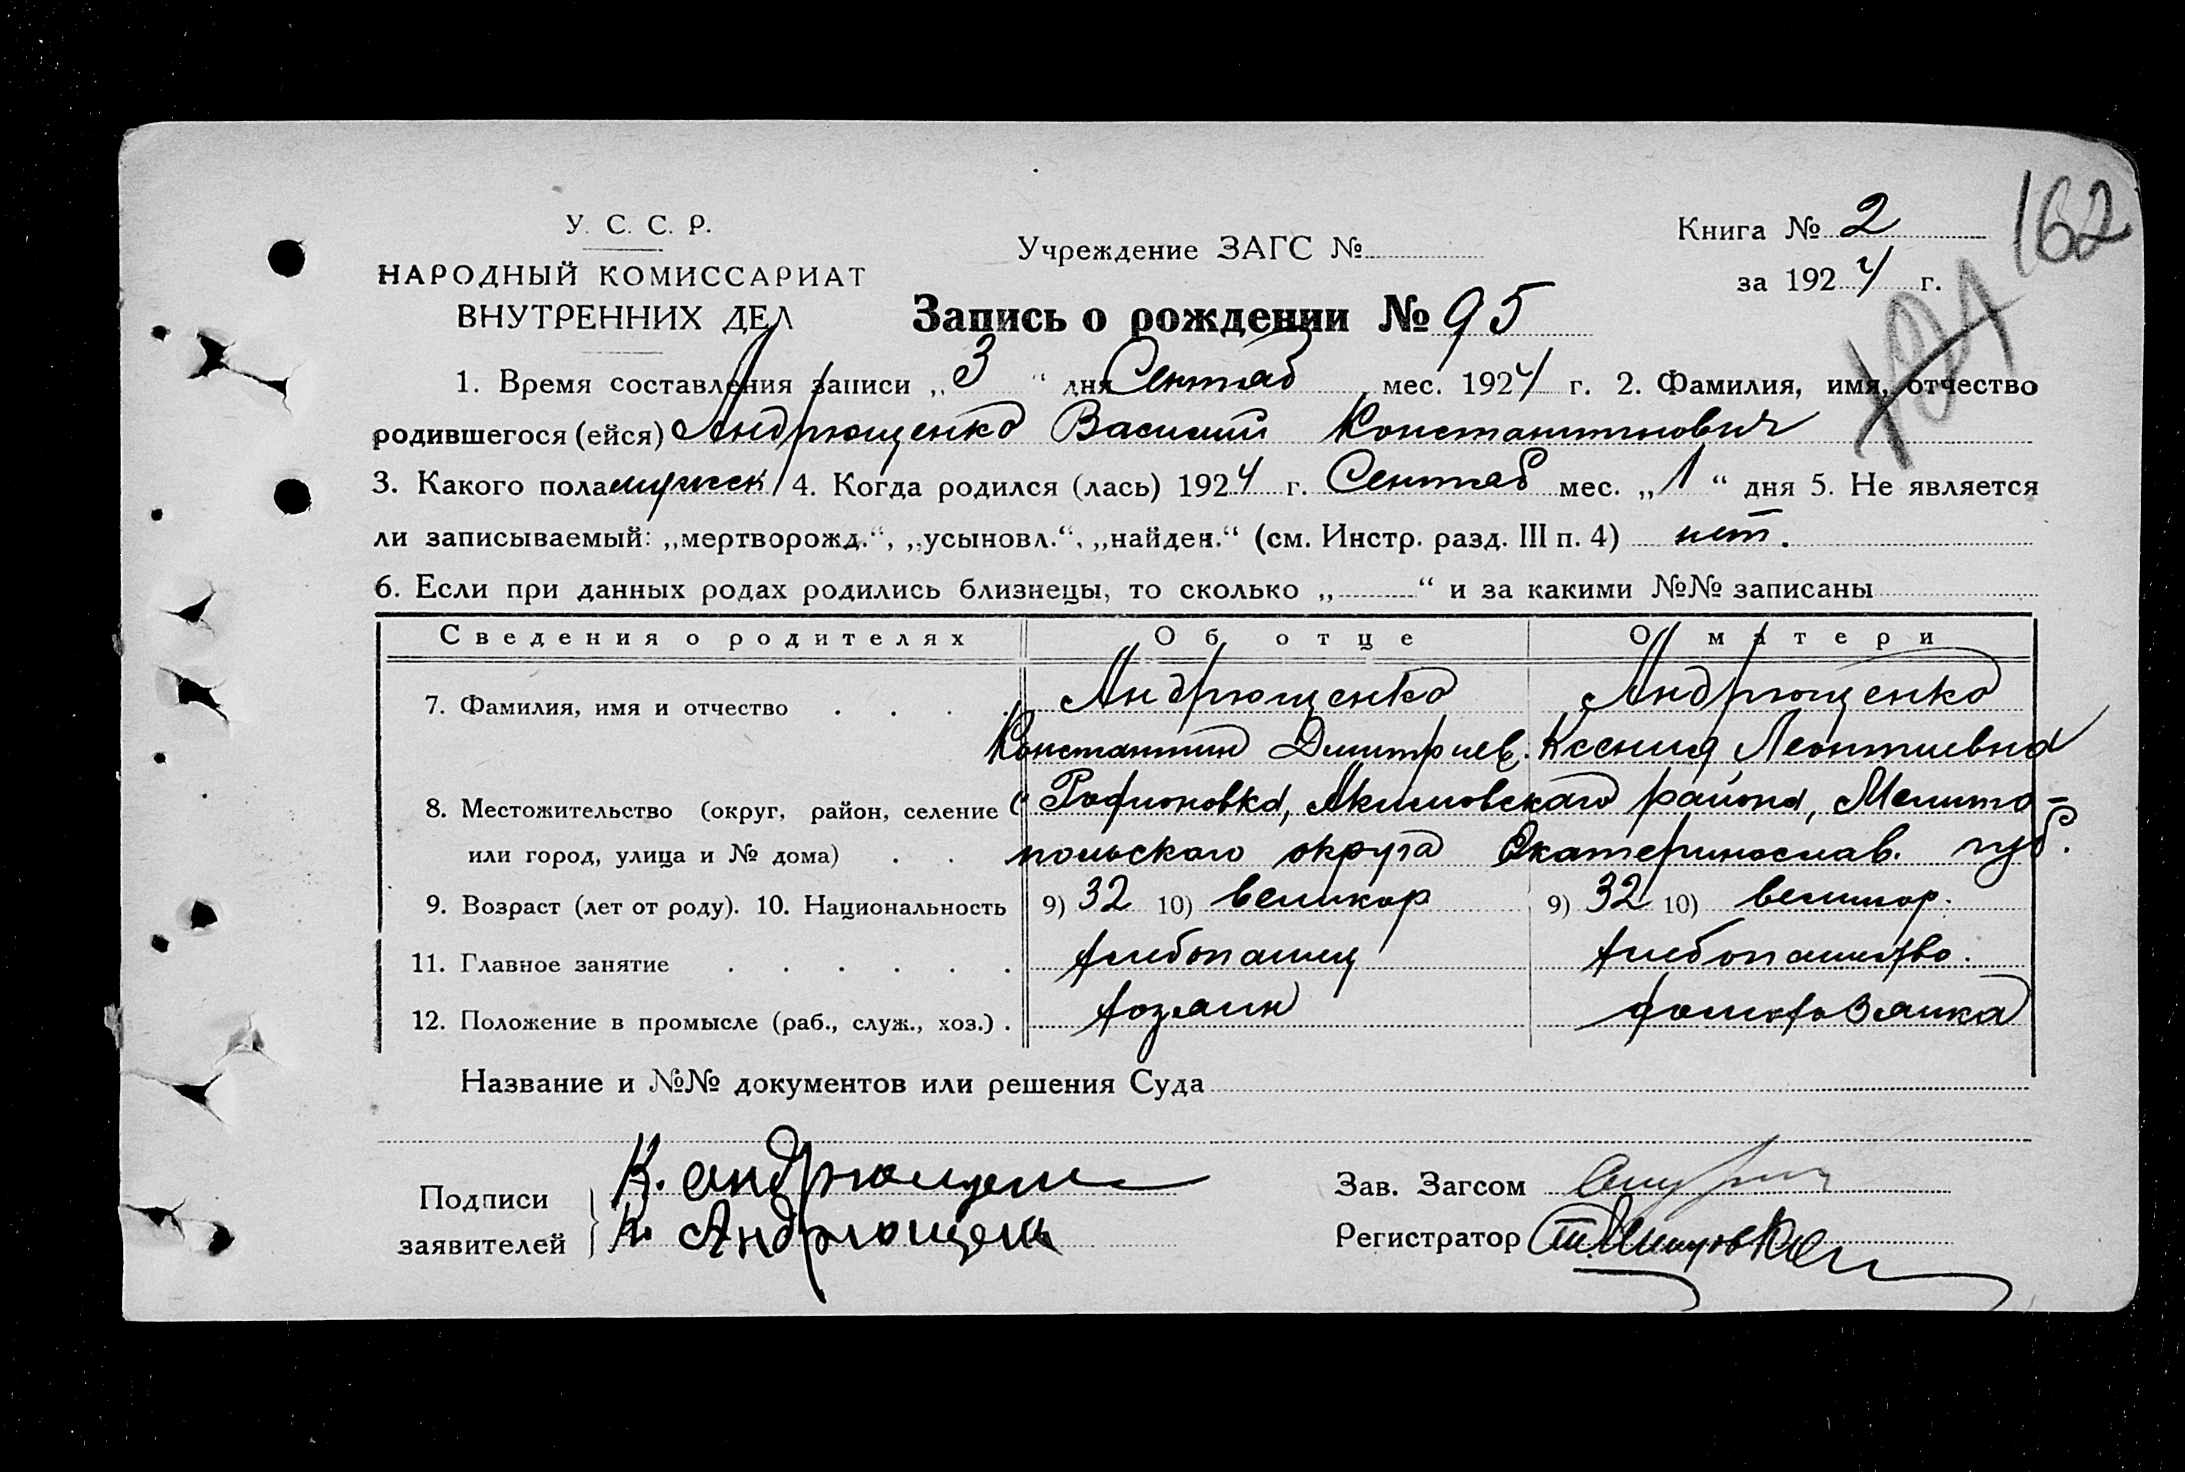 У. С. С. Р.
НАРОДНЫЙ КОМИССАРИАТ
ВНУТРЕННИХ ДЕЛ
Учреждение ЗАГС №
Книга № 2
за 1924 г.
162
Запись о рождении № 95
1. Время составления записи „3“ дня Сентяб мес. 1924 г. 2. Фамилия, имя, отчество
родившегося (ейся) Андрющенко Василий Константинович
3. Какого пола мужск 4. Когда родился (лась) 1924 г. Сентяб мес. „1“ дня 5. Не является
ли записываемый: „мертворожд.“, „усыновл.“, „найден.“ (см. Инстр. разд. III п. 4) нет.
6. Если при данных родах родились близнецы, то сколько „ “ и за какими №№ записаны
Сведения о родителях Об отце О матери
7. Фамилия, имя и отчество Андрющенко Андрющенко
Константин Дмитриев. Ксения Леонтиевна
8. Местожительство (округ, район, селение с Родионовка, Акимовского района, Мелито-
или город, улица и № дома) польского округа Екатеринослав. губ.
9. Возраст (лет от роду). 10. Национальность 9) 32 10) великор 9) 32 10) великор.
11. Главное занятие хлебопашец хлебопашество.
12. Положение в промысле (раб., служ., хоз.) хозяин домохозяйка
Название и №№ документов или решения Суда
Подписи заявителей
К. Андрющенк
К. Андрющенк
Зав. Загсом
Регистратор